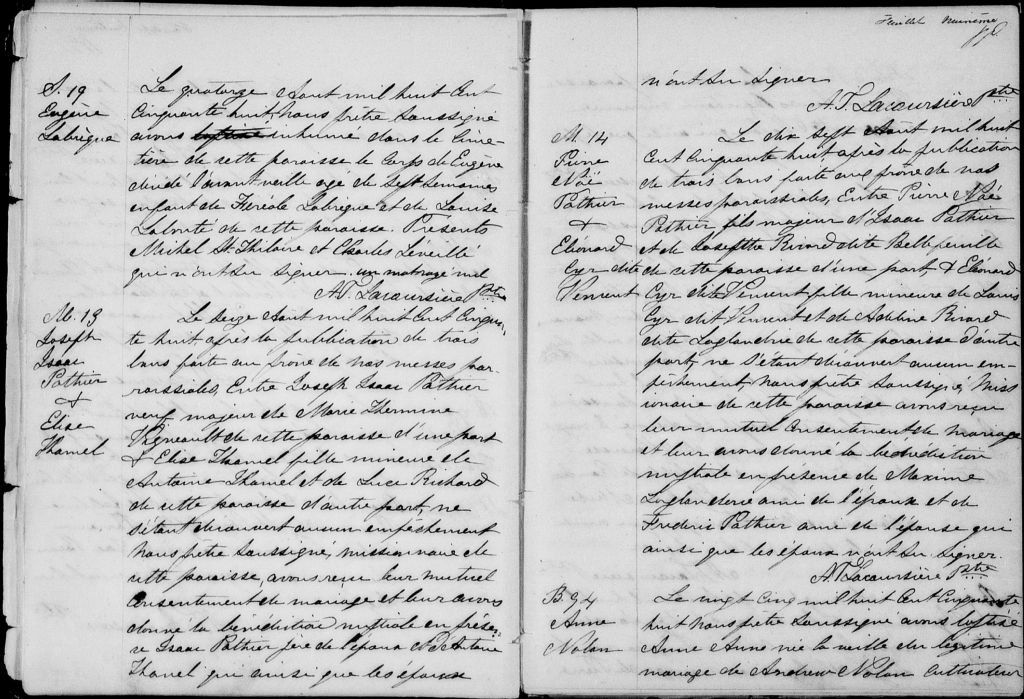 S. 19
Eugène
Labrègue
Le quatorze Aout mil huit cent
cinquante huit, nous prêtre soussigné
avons inhumé dans le cime-
tière de cette paroisse le corps de Eugène
décédé l'avant veille agé de sept semaines
enfant de Féréole Labrègue et de Louise
de cette paroisse. Présents
Michel St Hilaire et Charles Léveillé
qui n'ont su signer. un mot rayé nul
A. T. Lacoursière Ptre
M. 13
Joseph
Isaac
Pothier
&
Elise
Hamel
Le seize Aout mil huit cent cinquan-
te huit après la publication de trois
bans faite au prône de nos messes par-
roissiales, Entre Joseph Isaac Pothier
veuf majeur de Marie Hermine
Vigneault de cette paroisse d'une part
& Elise Hamel fille mineure de
Antoine Hamel et de Luce Richard
de cette paroisse d'autre part, ne
s'étant découvert aucun empêchement
nous prêtre soussigné, missionnaire de
cette paroisse, avons reçu leur mutuel
consentement de mariage et leur avons
donné la bénédiction nuptiale en présen-
ce Isaac Pothier père de l'époux et d'Antoine
Hamel qui ainsi que les époux
Feuillet Neuvième
n'ont su signer
A. T. Lacoursière Ptre
M. 14
Pierre
Noë
Pothier
&
Eléonard
Cyr dite
Vincent
Le dix sept Aôut mil huit
cent cinquante huit après la publication
de trois bans faite au prône de nos
messes paroissiales, Entre Pierre Noé
Pothier fils majeur d'Isaac Pothier
et de Josephte Rivard dite Bellefeuille
de cette paroisse d'une part & Eléonard
Cyr dite Vincent fille mineure de Louis
Cyr dit Vincent et de Adeline Rivard
dite Loglandrie de cette paroisse d'autre
part, ne s'étant découvert aucun em-
pêchement, nous prêtre soussigné, Miss
ionaire de cette paroisse avons reçu
leur mutuel consentement de mariage
et leur avons donné la bénédiction
nuptiale en présence de Maxime
Loglanderie ami de l'époux et de
Frederic Pothier ami de l'épouse qui
ainsi que les époux n'ont su signer.
A. T. Lacoursière Ptre
B. 94
Anne
Nolan
Le vingt cinq mil huit cent cinquante
huit nous prêtre soussigné avons baptisé
Anne Anne née la veille du légitime
mariage de Andrew Nolan cultivateur